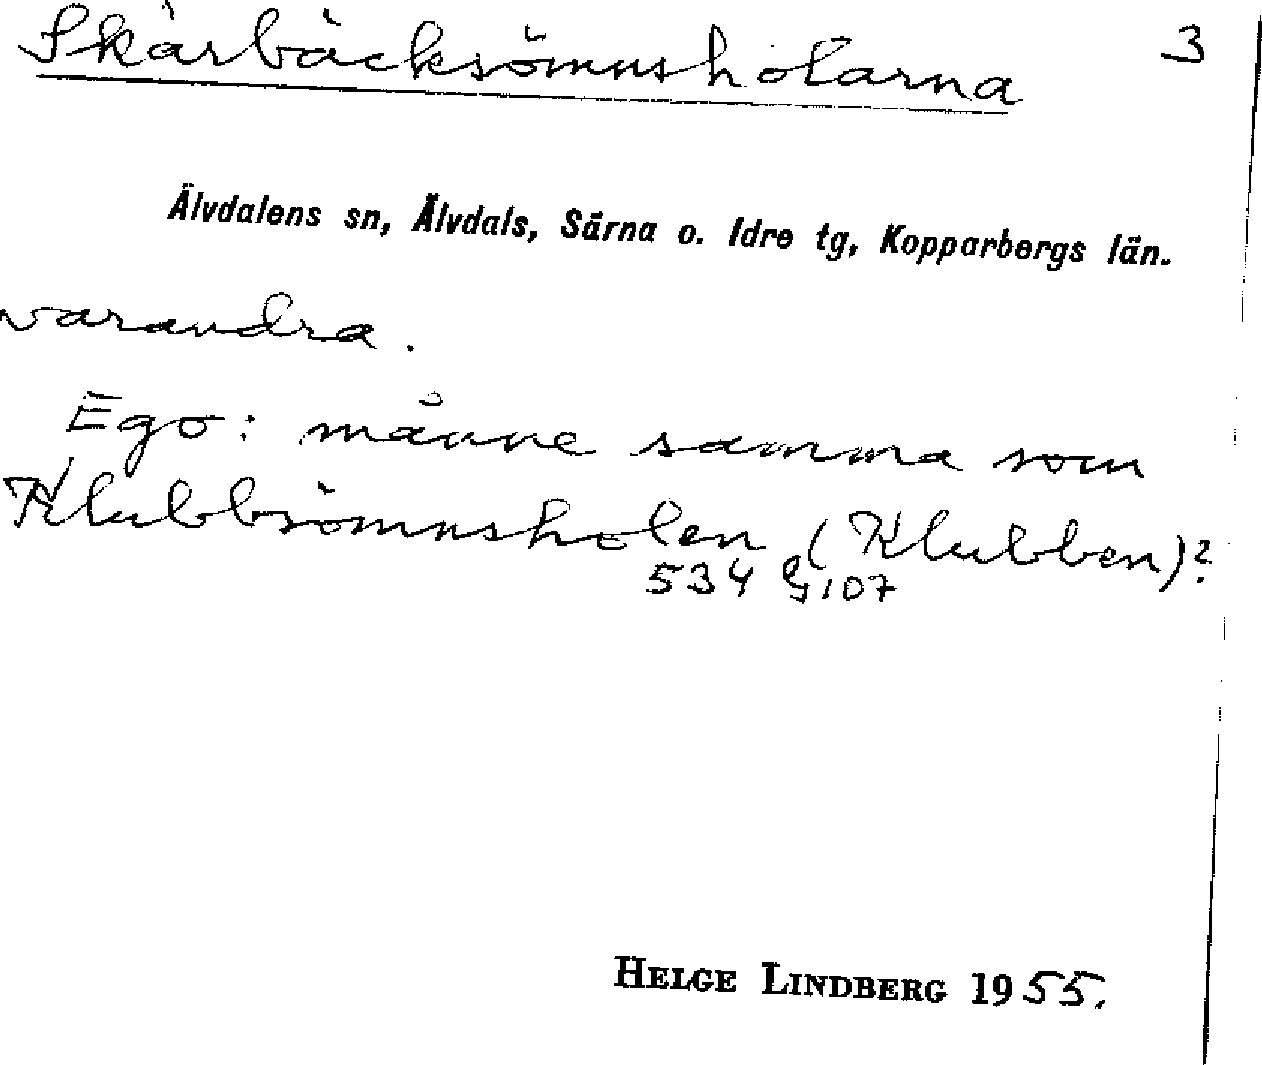 Skärbäcksömnsholarna 3
Älvdalens sn, Älvdals, Särna o. Idre tg, Kopparbergs län.
varandra.
Ego: månne samma som
Klubbsömnsholen (Klubben)?
534 G107
HELGE LINDBERG 1955.